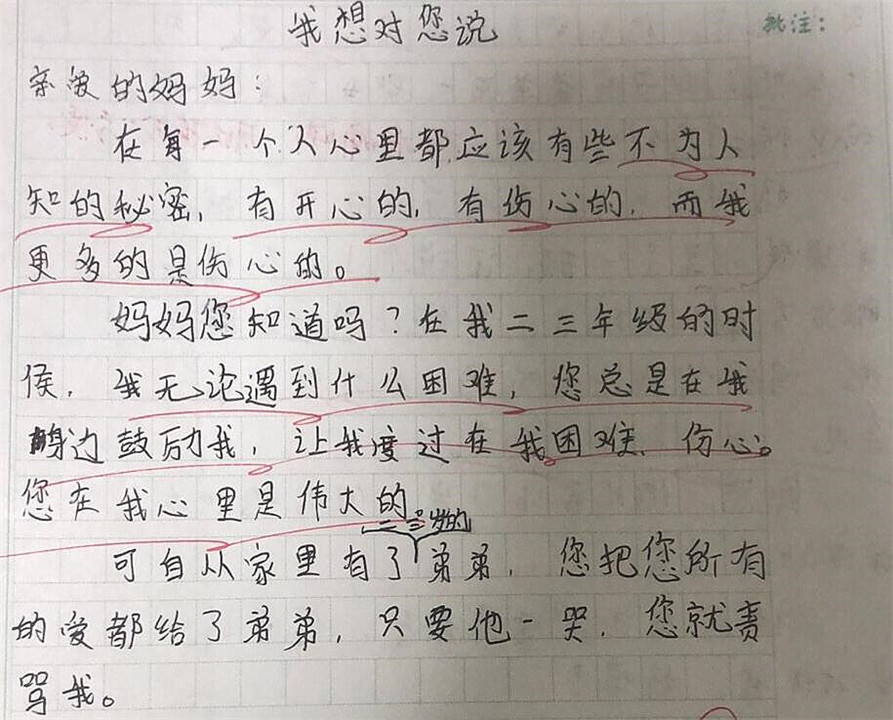 我想对您说
批注：
亲爱的妈妈：
在每一个人心里都应该有些不为人
知的秘密，有开心的，有伤心的，而我
更多的是伤心的。
妈妈您知道吗？在我二三年级的时
侯，我无论遇到什么困难，您总是在我
身边鼓励我，让我度过在我困难、伤心。
您在我心里是伟大的。
二三岁的
可自从家里有了弟弟，您把您所有
的爱都给了弟弟，只要他一哭，您就责
骂我。